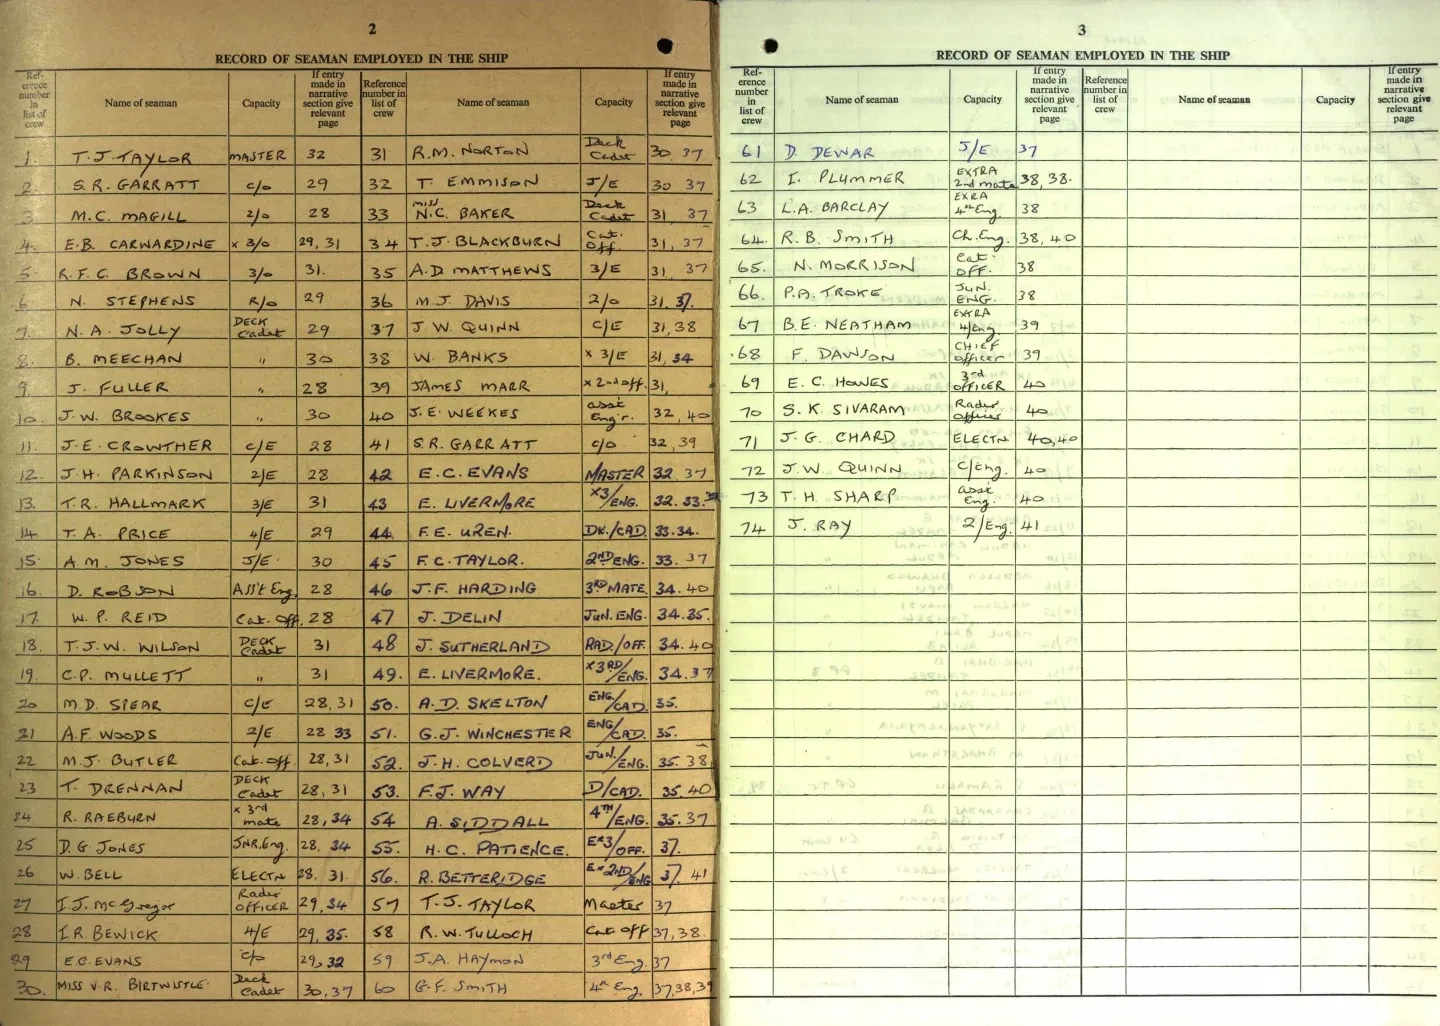 2
RECORD OF SEAMAN EMPLOYED IN THE SHIP
Reference number in list of crew | Name of seaman | Capacity | If entry made in narrative section give relevant page | Reference number in list of crew | Name of seaman | Capacity | If entry made in narrative section give relevant page
1. T.J. TAYLOR MASTER 32 | 31 R.M. NORTON Deck Cadet 30 37
2. S.R. GARRATT C/O 29 | 32 T. EMMISON J/E 30 37
3. M.C. MAGILL 2/O 28 | 33 miss N.C. BAKER Deck Cadet 31, 37
4. E.B. CARWARDINE x 3/O 29, 31 | 34 T.J. BLACKBURN Cat. Off. 31, 37
5. R.F.C. BROWN 3/O 31. | 35 A.D MATTHEWS 3/E 31, 37
6. N. STEPHENS R/O 29 | 36 M.J. DAVIS 2/O 31. 37.
7. N.A. JOLLY DECK Cadet 29 | 37 J.W. QUINN C/E 31,38
8. B. MEECHAN " 30 | 38 W. BANKS x 3/E 31, 34
9. J. FULLER " 28 | 39 JAMES MARR x 2nd off. 31,
10. J.W. BROOKES " 30 | 40 J.E. WEEKES asst Engr. 32, 40
11. J.E. CROWTHER C/E 28 | 41 S.R. GARRATT C/O 32, 39
12. J.H. PARKINSON 2/E 28 | 42 E.C. EVANS MASTER 32 37
13. T.R. HALLMARK 3/E 31 | 43 E. LIVERMORE x3/ENG. 32. 33.
14. T.A. PRICE 4/E 29 | 44 F.E. UREN. DK./CAD. 33.34.
15. A.M. JONES J/E. 30 | 45 F.C. TAYLOR. 2ND ENG. 33. 37
16. D. ROBSON Ass't Eng. 28 | 46 J.F. HARDING 3RD MATE. 34. 40
17. W.P. REID Cat. Off. 28 | 47 J. DELIN Jun. ENG. 34.35.
18. T.J.W. WILSON DECK Cadet 31 | 48 J. SUTHERLAND RAD./OFF. 34. 40
19. C.P. MULLETT " 31 | 49. E. LIVERMORE. x3RD/ENG. 34. 37
20 M.D. SPEAR C/E 28, 31 | 50. A.D. SKELTON ENG./CAD. 35.
21 A.F. WOODS 2/E 28 33 | 51. G.J. WINCHESTER ENG/CAD. 35.
22 M.J. BUTLER Cat. Off. 28, 31 | 52. J.H. COLVERD Jun./ENG. 35. 38
23 T. DRENNAN DECK Cadet 28, 31 | 53. F.J. WAY D/CAD. 35. 40
24 R. RAEBURN x 3rd mate 28, 34 | 54 A. SIDDALL 4TH/ENG. 35. 37
25 D.G. JONES JNR. Eng. 28, 34 | 55. H.C. PATIENCE. Ex3/OFF. 37.
26 W. BELL ELECTN 28, 31. | 56. R. BETTERIDGE Ex 2ND/ENG 37. 41
27 I.J. McGregor Radio OFFICER 29, 34 | 57 T.J. TAYLOR Master 37
28 I.R. BEWICK 4/E 29, 35. | 58 R.W. TULLOCH Cat Off 37, 38.
29 E.C. EVANS C/O 29, 32 | 59 J.A. HAYMON 3rd Eng. 37
30. MISS V.R. BIRTWISTLE Deck Cadet 30, 37 | 60 G.F. SMITH 4th Eng. 37,38,39
3
RECORD OF SEAMAN EMPLOYED IN THE SHIP
Reference number in list of crew | Name of seaman | Capacity | If entry made in narrative section give relevant page | Reference number in list of crew | Name of seaman | Capacity | If entry made in narrative section give relevant page
61 D. DEWAR J/E 37
62 I. PLUMMER EXTRA 2nd mate 38, 38.
63 L.A. BARCLAY EXRA 4th Eng. 38
64. R.B. SMITH Ch. Eng. 38, 40
65. N. MORRISON Cat. OFF. 38
66. P.A. TROKE JUN. ENG. 38
67 B.E. NEATHAM EXTRA 4/Eng 39
68 F. DAWSON CHIEF officer 39
69 E.C. HOWES 3rd OFFICER 40
70 S.K. SIVARAM Radio officer 40
71 J.G. CHARD ELECTN 40,40
72 J.W. QUINN C/Eng. 40
73 T.H. SHARP asst Eng. 40
74 J. RAY 2/Eng. 41